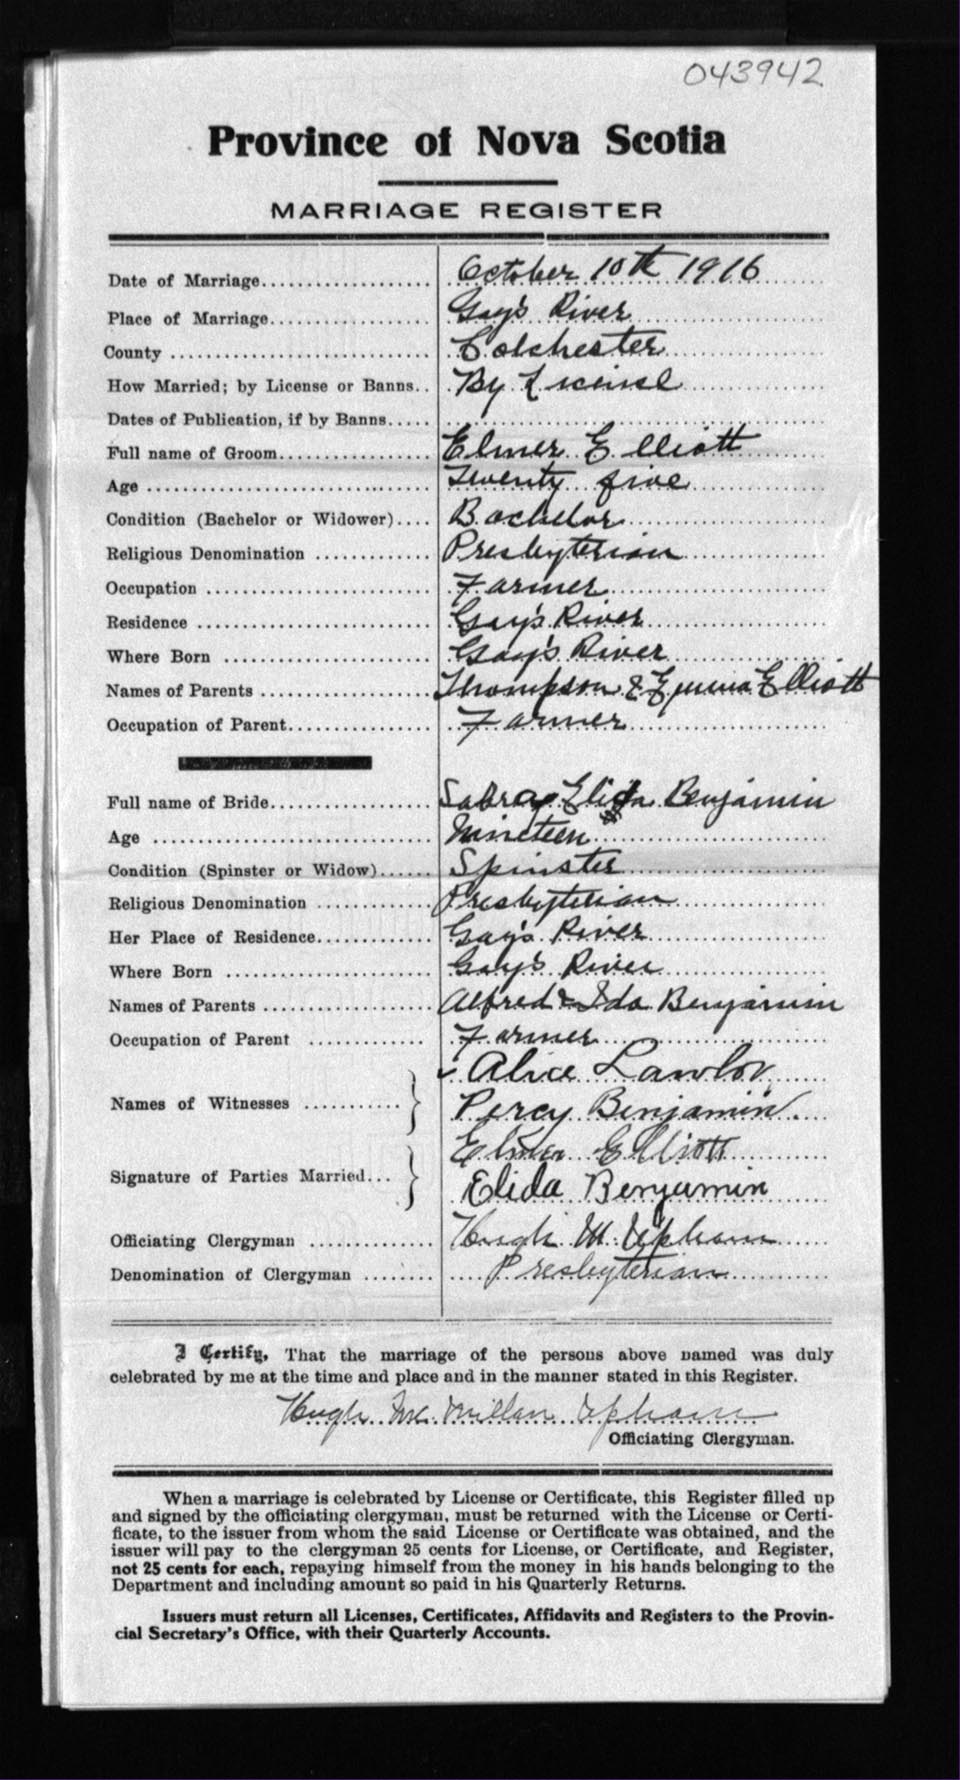 043942
Province of Nova Scotia
MARRIAGE REGISTER
Date of Marriage.................... October 10th 1916
Place of Marriage................... Gay's River
County .............................. Colchester
How Married; by License or Banns.. By License
Dates of Publication, if by Banns.....
Full name of Groom.................. Elmer Elliott
Age .................................. Twenty five
Condition (Bachelor or Widower).... Bachelor
Religious Denomination .............. Presbyterian
Occupation .......................... Farmer
Residence ........................... Gay's River
Where Born ......................... Gay's River
Names of Parents .................... Thompson & Emma Elliott
Occupation of Parent................. Farmer
Full name of Bride................... Sabra Elida Benjamin
Age ................................. Nineteen
Condition (Spinster or Widow)...... Spinster
Religious Denomination ............. Presbyterian
Her Place of Residence.............. Gay's River
Where Born ......................... Gay's River
Names of Parents .................... Alfred & Ida Benjamin
Occupation of Parent ............. Farmer
Alice Lawlor
Names of Witnesses ............ Percy Benjamin
Elmer Elliott
Signature of Parties Married... Elida Benjamin
Officiating Clergyman ............... Hugh M. Upham
Denomination of Clergyman ........ Presbyterian
I Certify, That the marriage of the persons above named was duly
celebrated by me at the time and place and in the manner stated in this Register.
Hugh McMillan Upham
Officiating Clergyman.
When a marriage is celebrated by License or Certificate, this Register filled up
and signed by the officiating clergyman, must be returned with the License or Certi-
ficate, to the issuer from whom the said License or Certificate was obtained, and the
issuer will pay to the clergyman 25 cents for License, or Certificate, and Register,
not 25 cents for each, repaying himself from the money in his hands belonging to the
Department and including amount so paid in his Quarterly Returns.
Issuers must return all Licenses, Certificates, Affidavits and Registers to the Provin-
cial Secretary's Office, with their Quarterly Accounts.